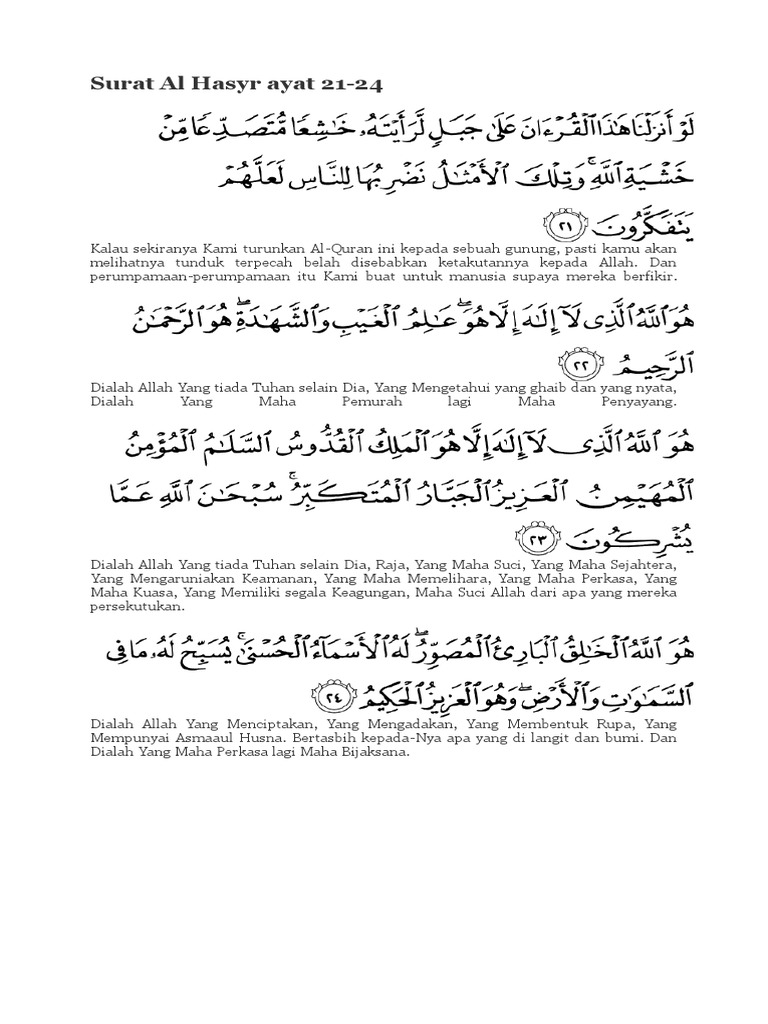 Surat Al Hasyr ayat 21-24
لَوْ أَنزَلْنَا هَٰذَا ٱلْقُرْءَانَ عَلَىٰ جَبَلٍ لَّرَأَيْتَهُۥ خَٰشِعًا مُّتَصَدِّعًا مِّنْ
خَشْيَةِ ٱللَّهِ ۚ وَتِلْكَ ٱلْأَمْثَٰلُ نَضْرِبُهَا لِلنَّاسِ لَعَلَّهُمْ
يَتَفَكَّرُونَ ٢١
Kalau sekiranya Kami turunkan Al-Quran ini kepada sebuah gunung, pasti kamu akan
melihatnya tunduk terpecah belah disebabkan ketakutannya kepada Allah. Dan
perumpamaan-perumpamaan itu Kami buat untuk manusia supaya mereka berfikir.
هُوَ ٱللَّهُ ٱلَّذِى لَآ إِلَٰهَ إِلَّا هُوَ ۖ عَٰلِمُ ٱلْغَيْبِ وَٱلشَّهَٰدَةِ ۖ هُوَ ٱلرَّحْمَٰنُ
ٱلرَّحِيمُ ٢٢
Dialah Allah Yang tiada Tuhan selain Dia, Yang Mengetahui yang ghaib dan yang nyata,
Dialah Yang Maha Pemurah lagi Maha Penyayang.
هُوَ ٱللَّهُ ٱلَّذِى لَآ إِلَٰهَ إِلَّا هُوَ ٱلْمَلِكُ ٱلْقُدُّوسُ ٱلسَّلَٰمُ ٱلْمُؤْمِنُ
ٱلْمُهَيْمِنُ ٱلْعَزِيزُ ٱلْجَبَّارُ ٱلْمُتَكَبِّرُ ۚ سُبْحَٰنَ ٱللَّهِ عَمَّا
يُشْرِكُونَ ٢٣
Dialah Allah Yang tiada Tuhan selain Dia, Raja, Yang Maha Suci, Yang Maha Sejahtera,
Yang Mengaruniakan Keamanan, Yang Maha Memelihara, Yang Maha Perkasa, Yang
Maha Kuasa, Yang Memiliki segala Keagungan, Maha Suci Allah dari apa yang mereka
persekutukan.
هُوَ ٱللَّهُ ٱلْخَٰلِقُ ٱلْبَارِئُ ٱلْمُصَوِّرُ ۖ لَهُ ٱلْأَسْمَآءُ ٱلْحُسْنَىٰ ۚ يُسَبِّحُ لَهُۥ مَا فِى
ٱلسَّمَٰوَٰتِ وَٱلْأَرْضِ ۖ وَهُوَ ٱلْعَزِيزُ ٱلْحَكِيمُ ٢٤
Dialah Allah Yang Menciptakan, Yang Mengadakan, Yang Membentuk Rupa, Yang
Mempunyai Asmaaul Husna. Bertasbih kepada-Nya apa yang di langit dan bumi. Dan
Dialah Yang Maha Perkasa lagi Maha Bijaksana.